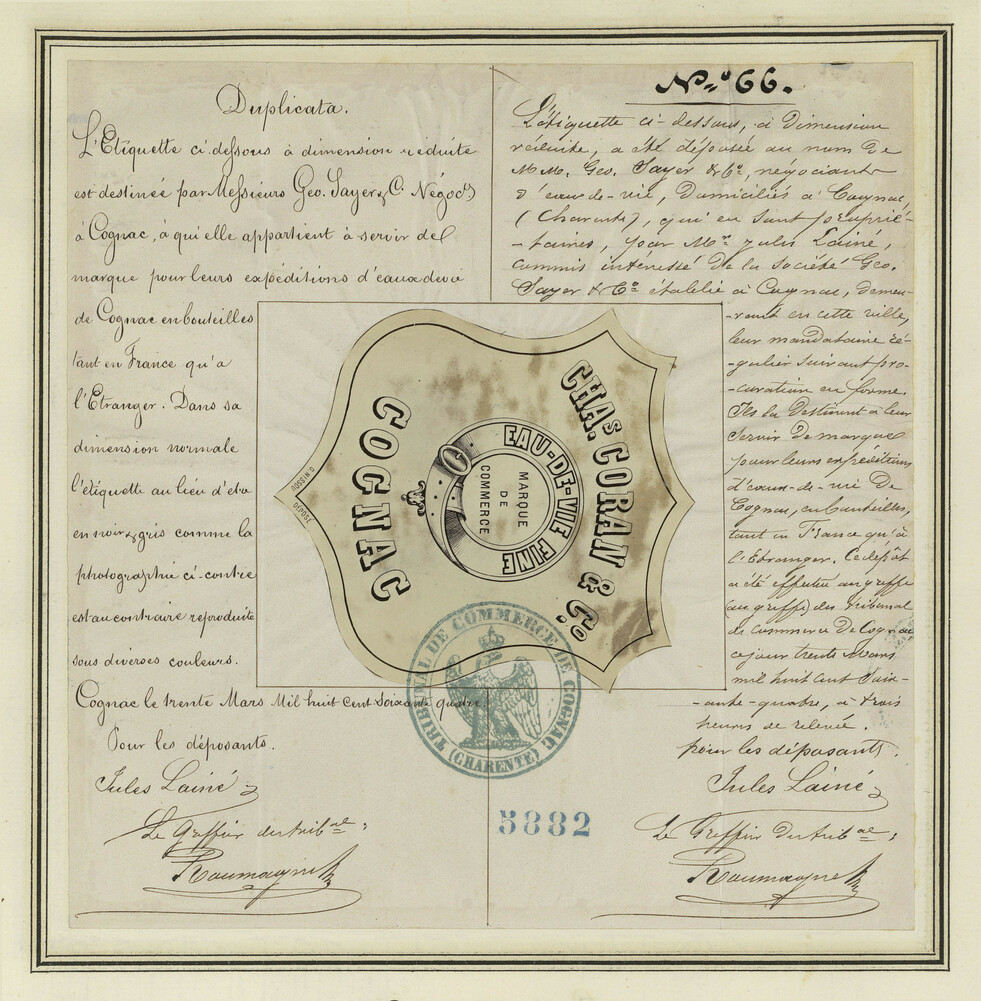 Duplicata.
L'Etiquette ci-dessous à dimension réduite
est destinée par Messieurs Geo. Sayer & C. Négocts
à Cognac, à qui elle appartient à servir de
marque pour leurs expéditions d'eaux de vie
de Cognac en bouteilles
tant en France qu'à
l'Etranger. Dans sa
dimension normale
l'étiquette au lieu d'etre
en noir & gris comme la
photographie ci-contre
est au contraire reproduite
sous diverses couleurs.
Cognac le trente Mars Mil huit Cent Soixante quatre.
Pour les déposants.
Jules Lainé
Le Greffier du tribal:
Roumagne
No 66.
L'étiquette ci-dessous, à dimension
réduite, a été déposée au nom de
MM. Geo. Sayer & Co, négociants
d'eau-de-vie, domiciliés à Cognac,
(Charente), qui en sont proprié-
-taires, par Mr Jules Lainé,
commis intéressé de la société Geo.
Sayer & Co établie à Cognac, demeu-
-rant en cette ville,
leur mandataire ré-
-gulier suivant pro-
-curation en forme.
Ils la destinent à leur
servir de marque
pour leurs expéditions
d'eaux-de-vie de
Cognac, en bouteilles,
tant en France qu'à
l'Etranger. Ce dépôt
a été effectué au greffe
(au greffe) du tribunal
de commerce de Cognac
ce jour trente mars
mil huit cent soix-
-ante-quatre, à trois
heures de relevée.
pour les déposants.
Jules Lainé
Le Greffier du tribal:
Roumagne
CHAS. CORAN & Co.
COGNAC
EAU-DE-VIE FINE
MARQUE
DE
COMMERCE
DÉPOSÉ
TRIBUNAL DE COMMERCE DE COGNAC
(CHARENTE)
5882